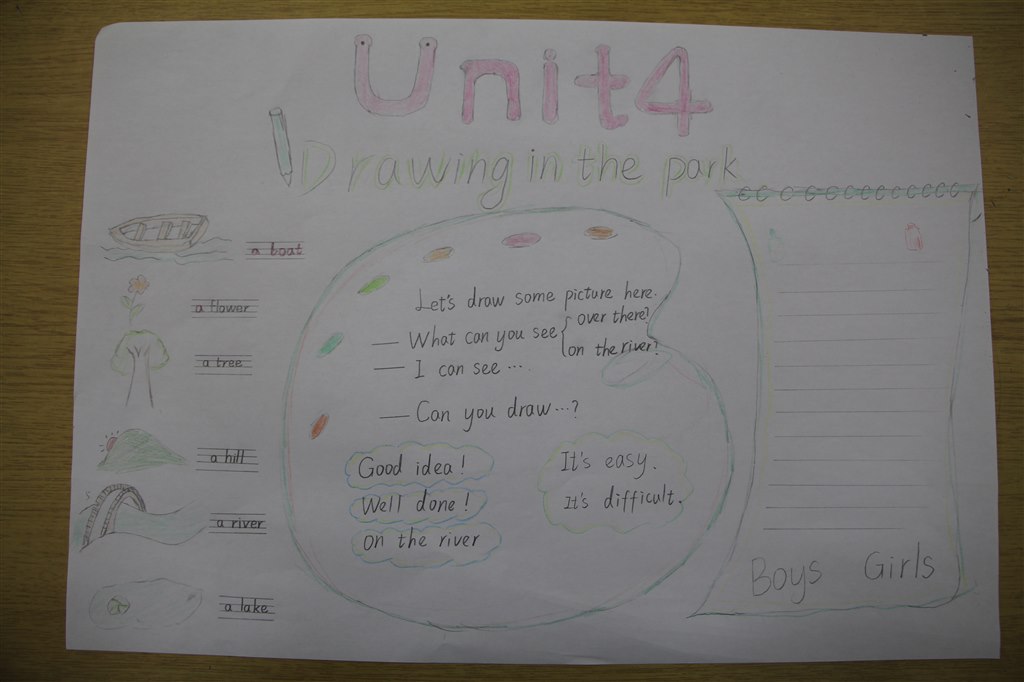 Unit4
Drawing in the park
a boat
a flower
a tree
a hill
a river
a lake
Let's draw some picture here.
— What can you see { over there?
on the river?
— I can see ….
— Can you draw …?
Good idea!
Well done!
on the river
It's easy.
It's difficult.
Boys Girls